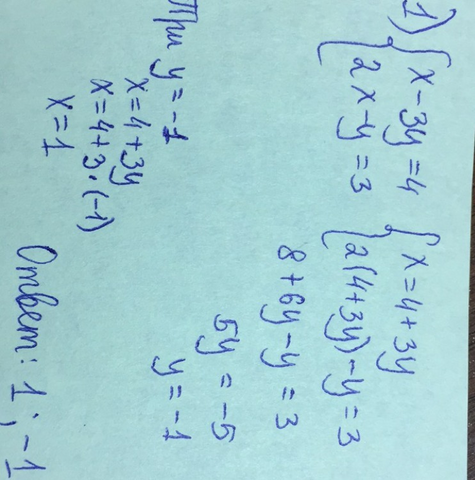 1) { x - 3y = 4
{ 2x - y = 3
{ x = 4 + 3y
{ 2(4 + 3y) - y = 3
8 + 6y - y = 3
5y = -5
y = -1
При y = -1
x = 4 + 3y
x = 4 + 3 · (-1)
x = 1
Ответ: 1 ; -1